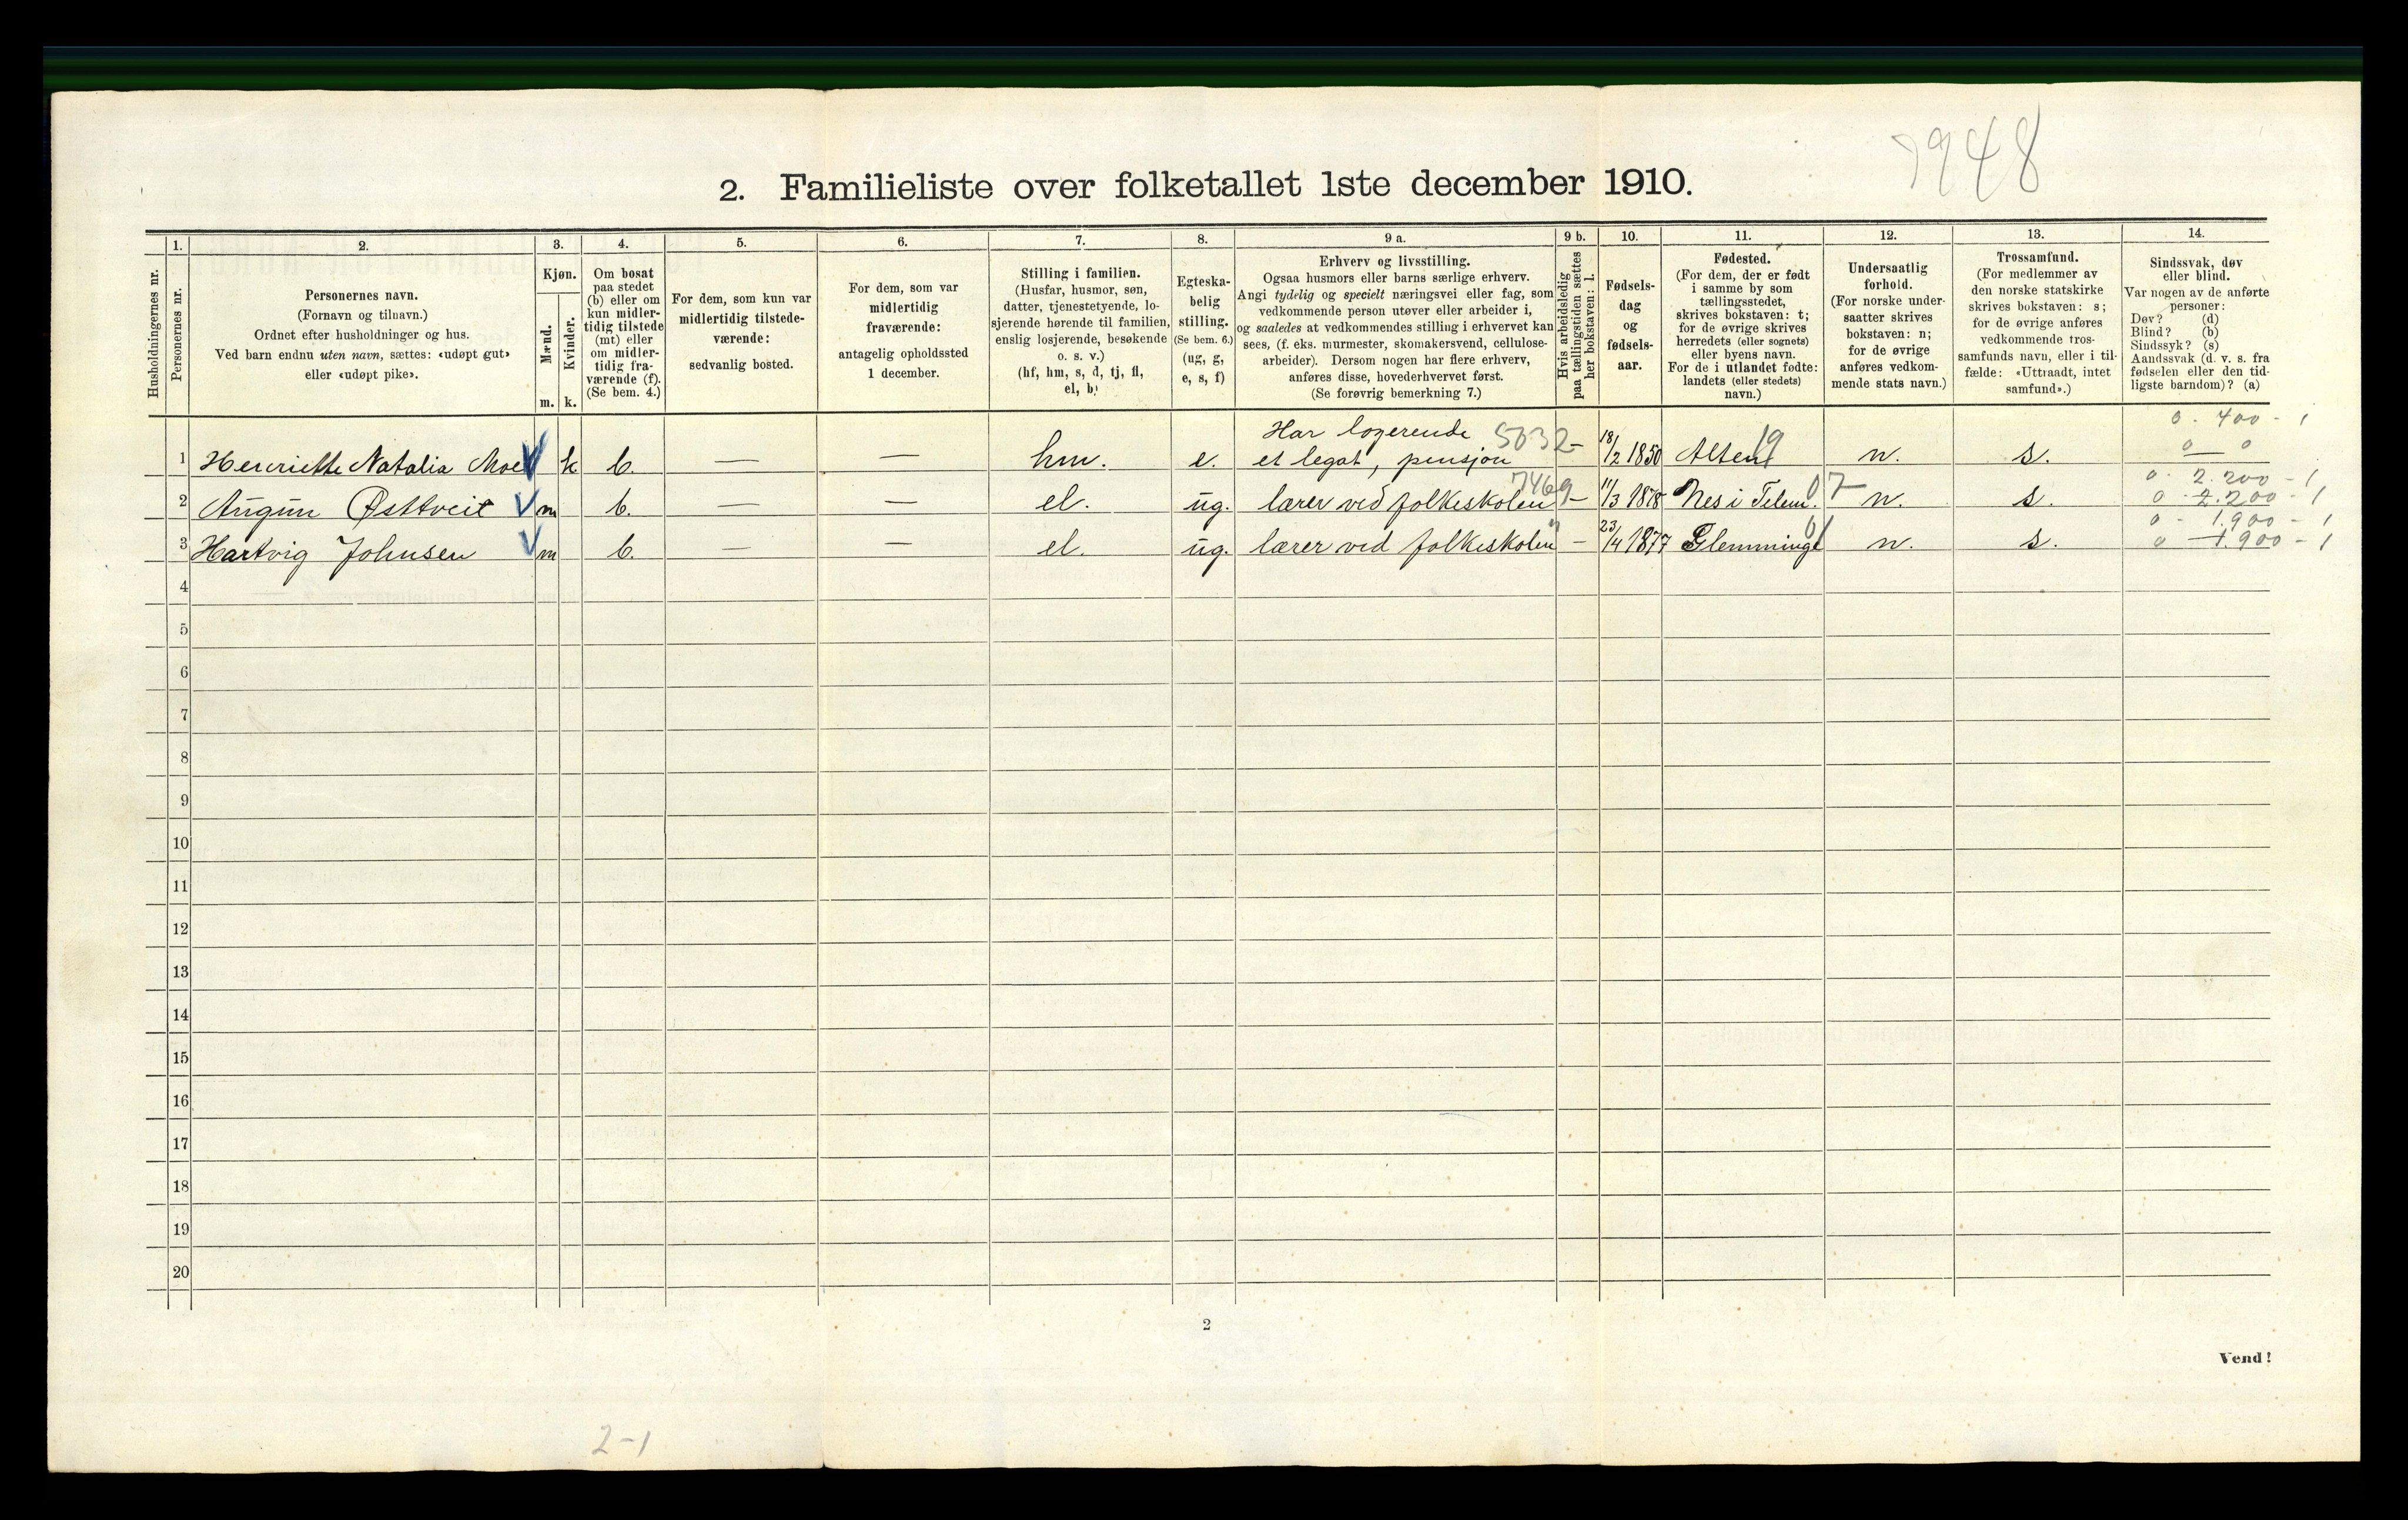 7948
2. Familieliste over folketallet 1ste december 1910.
Husholdningernes nr.
1.
Personernes nr.
2.
Personernes navn.
(Fornavn og tilnavn.)
Ordnet efter husholdninger og hus.
Ved barn endnu uten navn, sættes: «udøpt gut»
eller «udøpt pike».
3.
Kjøn.
Mænd.
Kvinder.
m. k.
4.
Om bosat
paa stedet
(b) eller om
kun midler-
tidig tilstede
(mt) eller
om midler-
tidig fra-
værende (f).
(Se bem. 4.)
5.
For dem, som kun var
midlertidig tilstede-
værende:
sedvanlig bosted.
6.
For dem, som var
midlertidig
fraværende:
antagelig opholdssted
1 december.
7.
Stilling i familien.
(Husfar, husmor, søn,
datter, tjenestetyende, lo-
sjerende hørende til familien,
enslig losjerende, besøkende
o. s. v.)
(hf, hm, s, d, tj, fl,
el, b)
8.
Egteska-
belig
stilling.
(Se bem. 6.)
(ug, g,
e, s, f)
9 a.
Erhverv og livsstilling.
Ogsaa husmors eller barns særlige erhverv.
Angi tydelig og specielt næringsvei eller fag, som
vedkommende person utøver eller arbeider i,
og saaledes at vedkommendes stilling i erhvervet kan
sees, (f. eks. murmester, skomakersvend, cellulose-
arbeider). Dersom nogen har flere erhverv,
anføres disse, hovederhvervet først.
(Se forøvrig bemerkning 7.)
9 b.
Hvis arbeidsledig
paa tællingstiden sættes
her bokstaven: l.
10.
Fødsels-
dag
og
fødsels-
aar.
11.
Fødested.
(For dem, der er født
i samme by som
tællingsstedet,
skrives bokstaven: t;
for de øvrige skrives
herredets (eller sognets)
eller byens navn.
For de i utlandet fødte:
landets (eller stedets)
navn.)
12.
Undersaatlig
forhold.
(For norske under-
saatter skrives
bokstaven: n;
for de øvrige
anføres vedkom-
mende stats navn.)
13.
Trossamfund.
(For medlemmer av
den norske statskirke
skrives bokstaven: s;
for de øvrige anføres
vedkommende tros-
samfunds navn, eller i til-
fælde: «Uttraadt, intet
samfund».)
14.
Sindssvak, døv
eller blind.
Var nogen av de anførte
personer:
Døv? (d)
Blind? (b)
Sindssyk? (s)
Aandssvak (d. v. s. fra
fødselen eller den tid-
ligste barndom)? (a)
Har logerende 5032 0 - 400 - 1
1 Henriette Natalia Moe k b. — — hm. e. et legat, pensjon - 18/2 1850 Alten 19 n. s. 0 0
7469 0 - 2.200 - 1
2 Augun Østtveit m b. — — el. ug. lærer ved folkeskolen - 11/3 1878 Nes i Telem. 07 n. s. 0 - 2.200 - 1
" 0 - 1.900 - 1
3 Hartvig Johnsen m b. — — el. ug. lærer ved folkeskolen - 23/4 1877 Glemminge 01 n. s. 0 1.900 - 1
4
5
6
7
8
9
10
11
12
13
14
15
16
17
18
19
20
2
Vend!
2-1